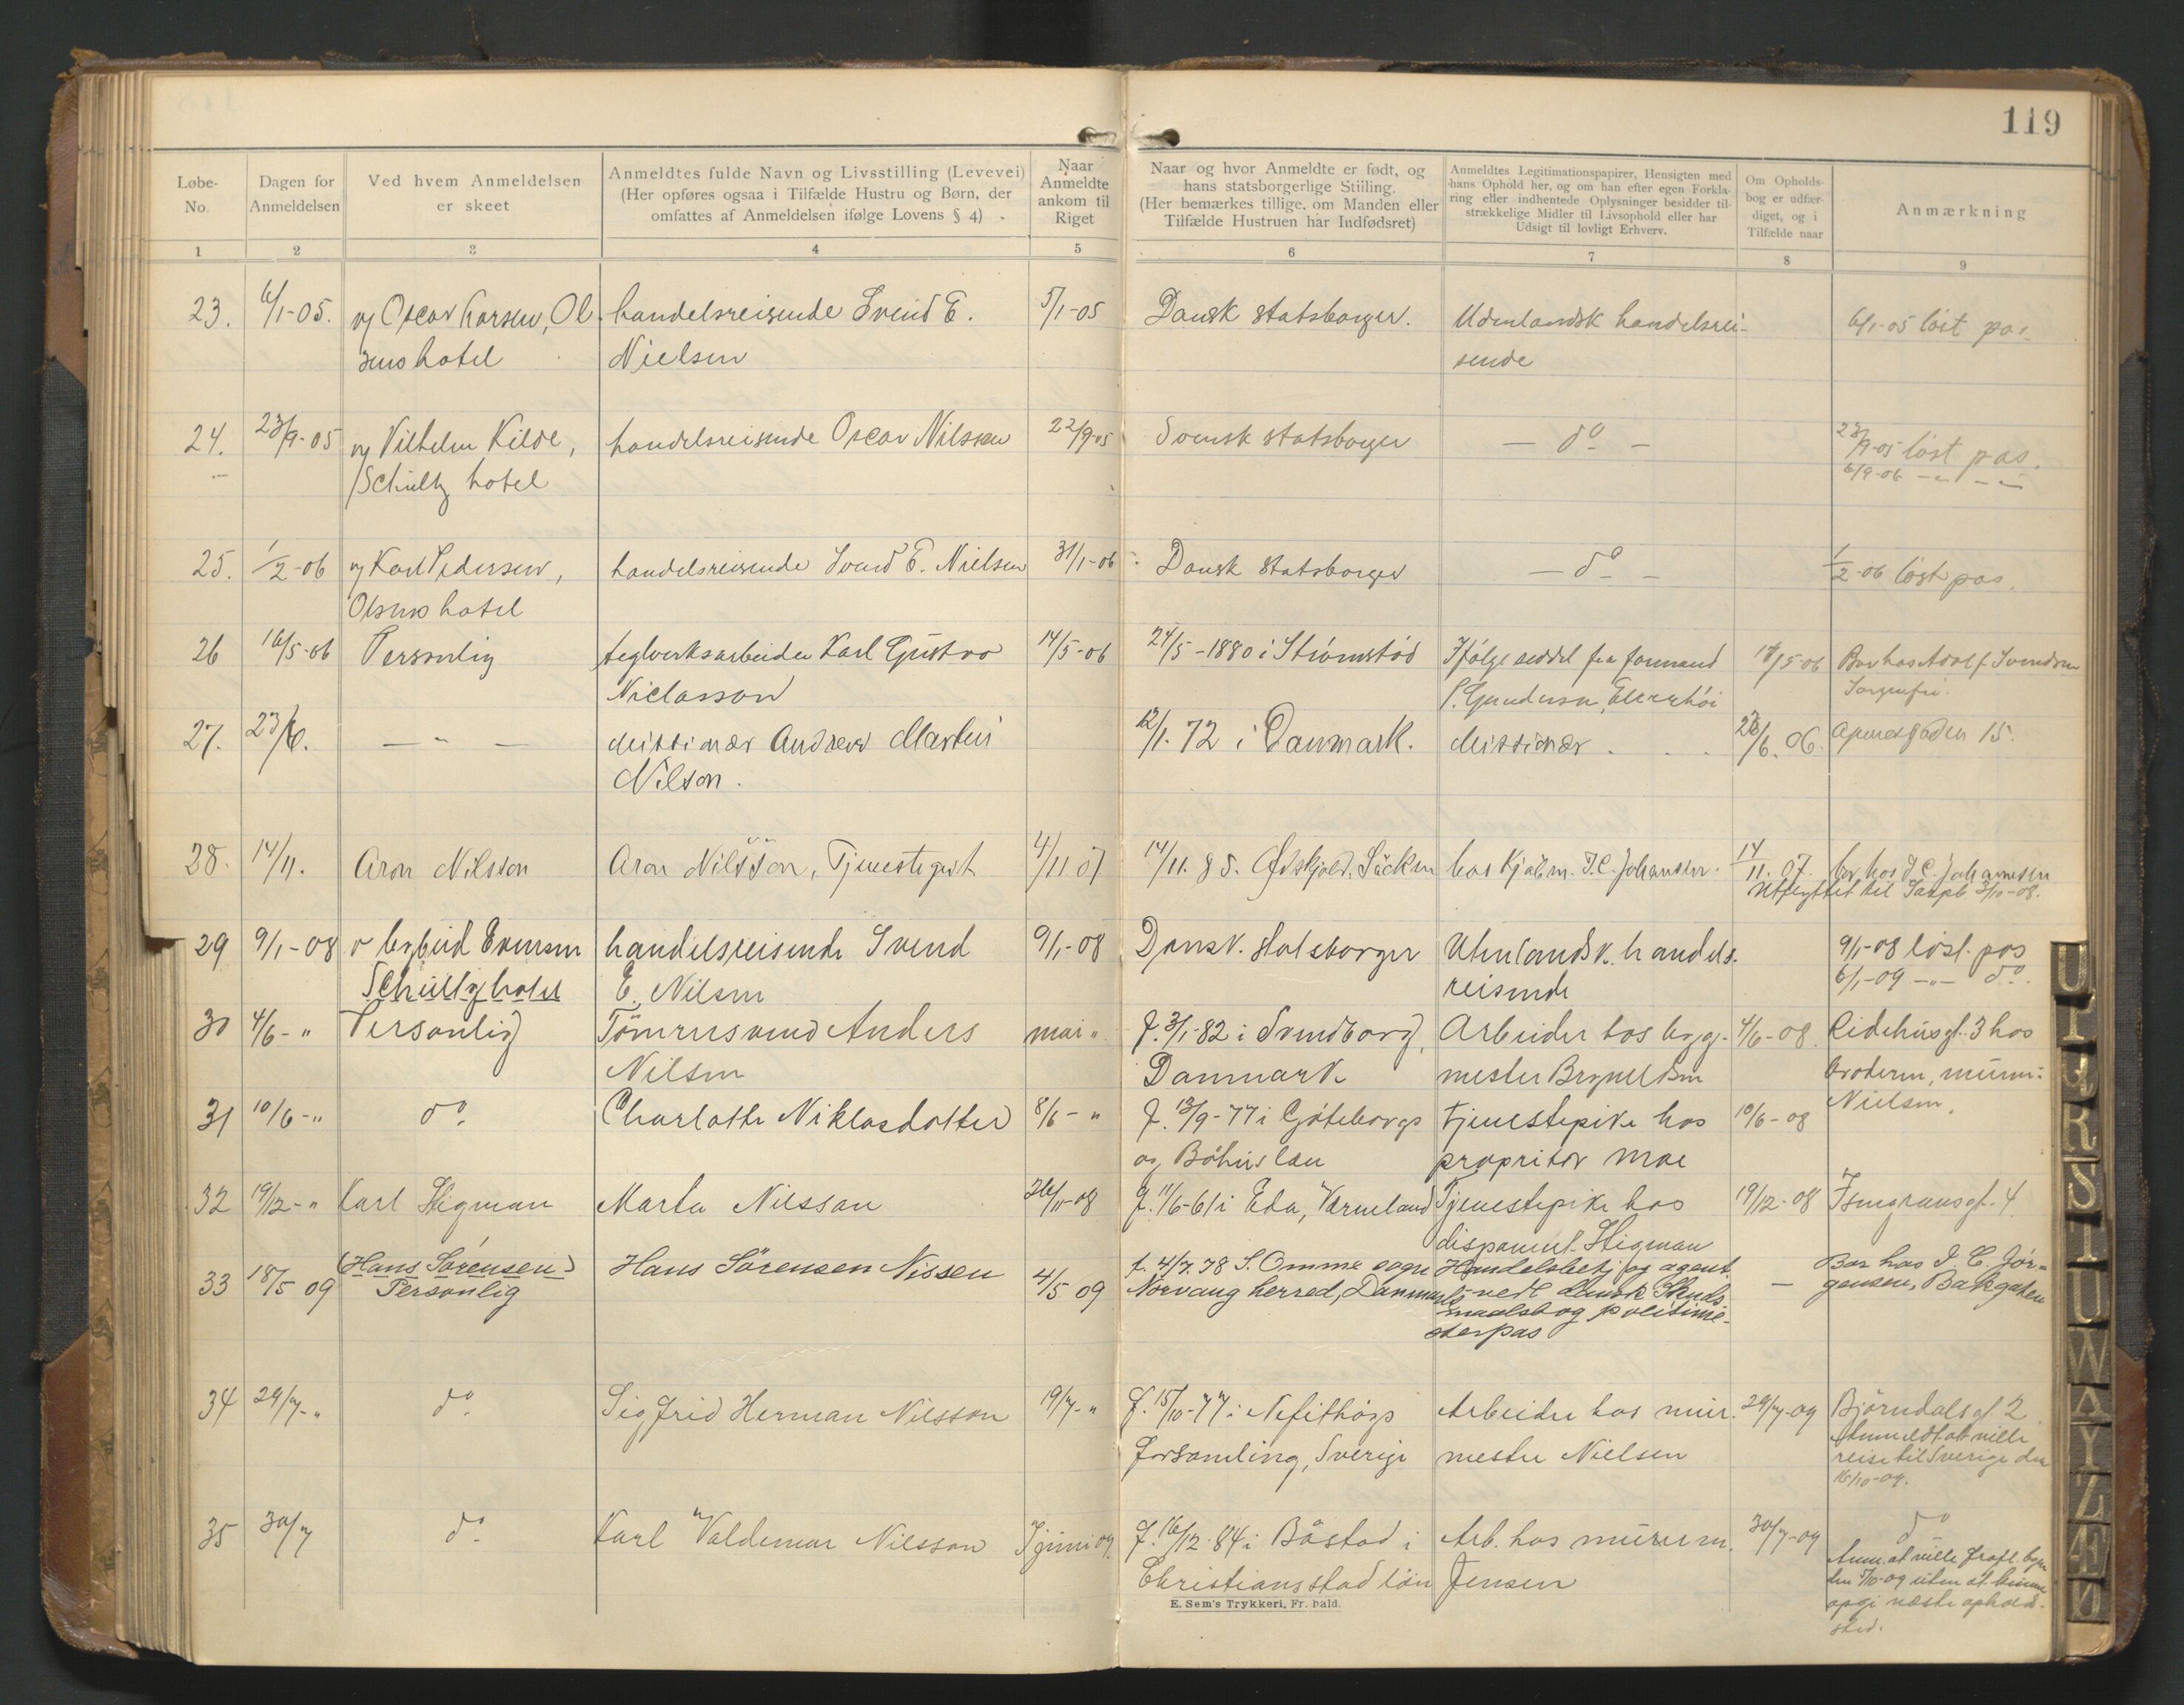 119
Løbe-
No.
Dagen for
Anmeldelsen
Ved hvem Anmeldelsen
er skeet
Anmeldtes fulde Navn og Livsstilling (Levevei)
(Her opføres ogsaa i Tilfælde Hustru og Børn, der
omfattes af Anmeldelsen ifølge Lovens § 4)
Naar
Anmeldte
ankom til
Riget
Naar og hvor Anmeldte er født, og
hans statsborgerlige Stilling.
(Her bemærkes tillige, om Manden eller
Tilfælde Hustruen har Indfødsret)
Anmeldtes Legitimationspapirer, Hensigten med
hans Ophold her, og om han efter egen Forkla-
ring eller indhentede Oplysninger besidder til-
strækkelige Midler til Livsophold eller har
Udsigt til lovligt Erhverv.
Om Opholds-
bog er udfær-
diget, og i
Tilfælde naar
Anmærkning
1 2 3 4 5 6 7 8 9
23. 6/1-05. v/ Oscar Larsen, Ol handelsreisende Svend E. 5/1-05 Dansk statsborger. Udenlandsk handelsrei- 6/1-05 löst pas.
sens hotel Nielsen sende
24. 23/9-05 v/ Vilhelm Kilde, handelsreisende Oscar Nilsson 22/9-05 Svensk statsborger — do — 23/9-05 löst pas.
Schultz hotel 6/9-06 -"- -"-
25. 1/2-06 v/ Karl Pedersen, handelsreisende Svend E. Nielsen 31/1-06 Dansk statsborger — do — 1/2-06 löst pas.
Olsens hotel
26 16/5-06 Personlig teglverksarbeider Karl Gustav 14/5-06 24/5-1880 i Strömstad Ifölge seddel fra formand 16/5-06 Bor hos Adolf Svendsen
Niclasson S. Gundersen, Sorgenfri.
27. 23/6. — " — Missionær Andrew Martin 12/1. 72 i Danmark. Missionær 23/6. 06. Apenesgaden 15.
Nilson.
28. 14/11. Aron Nilsson Aron Nilsson, Tjenestegut 4/11 07 14/11. 85. hos Kjøbm. J.C. Johansen. 14/11. 07. bor hos J C. Johannesen
Utflyttet til Sarpb. 3/10-08.
29 9/1-08 v Evensen handelsreisende Svend 9/1-08 Dansk. statsborger Utenlandsk. handels- 9/1-08 löst. pas
Schultz hotel E. Nilsen reisende 6/1-09 -"- do.
30 4/6-" Personlig Tömrersvend Anders mai " f. 3/1-82 i Svendborg, Arbeider hos byg- 4/6-08. Ridehusgt. 3 hos
Nilsen Danmark mester Brynildsen broderen, murm:
31 10/6-" do. Charlotte Niklasdotter 8/6-" f. 13/9-77 i Göteborgs Tjenestepike hos 10/6-08 Nielsen.
og Bohus len propritær Moe
32 19/12-" Karl Stigman Marta Nilsson 26/11-08 f. 11/6-61 i Eda, Värmeland Tjenestepike hos 19/12-08 Isengransgt. 4
disponent Stigman
33 18/5 09 (Hans Sörensen) Hans Sörensen Nissen 4/5 09 f. 4/7. 78 S. Omme sogn Handelsbetj og agent. — Bor hos J. C. Jör-
Personlig Nørvang herred, Danmark vedl dansk Skuds gensen, Bakgaten
maalsbog politime-
sterpas
34 29/7-" do Sigfrid Herman Nilsson 19/7-" f. 15/10-77 i Arbeider hos mur- 29/7-09 Björndalsgt 2
forsamling, Sverige mester Nielsen Anmeldt at ville
reise til Sverige den
16/10-09.
35 30/7 do Karl Valdemar Nilsson I juni 09. f. 16/12-84 i Båstad i Arb. hos murerm. 30/7-09 do
Christiansstad län Jensen Anm. at ville frafl. byen
den 5/10-09 uten at kunne
opgi næste opholds-
sted.
E. Sem's Trykkeri, Fr. hald.
U
R
S
T
U
W
Y
Z
Æ
Ø